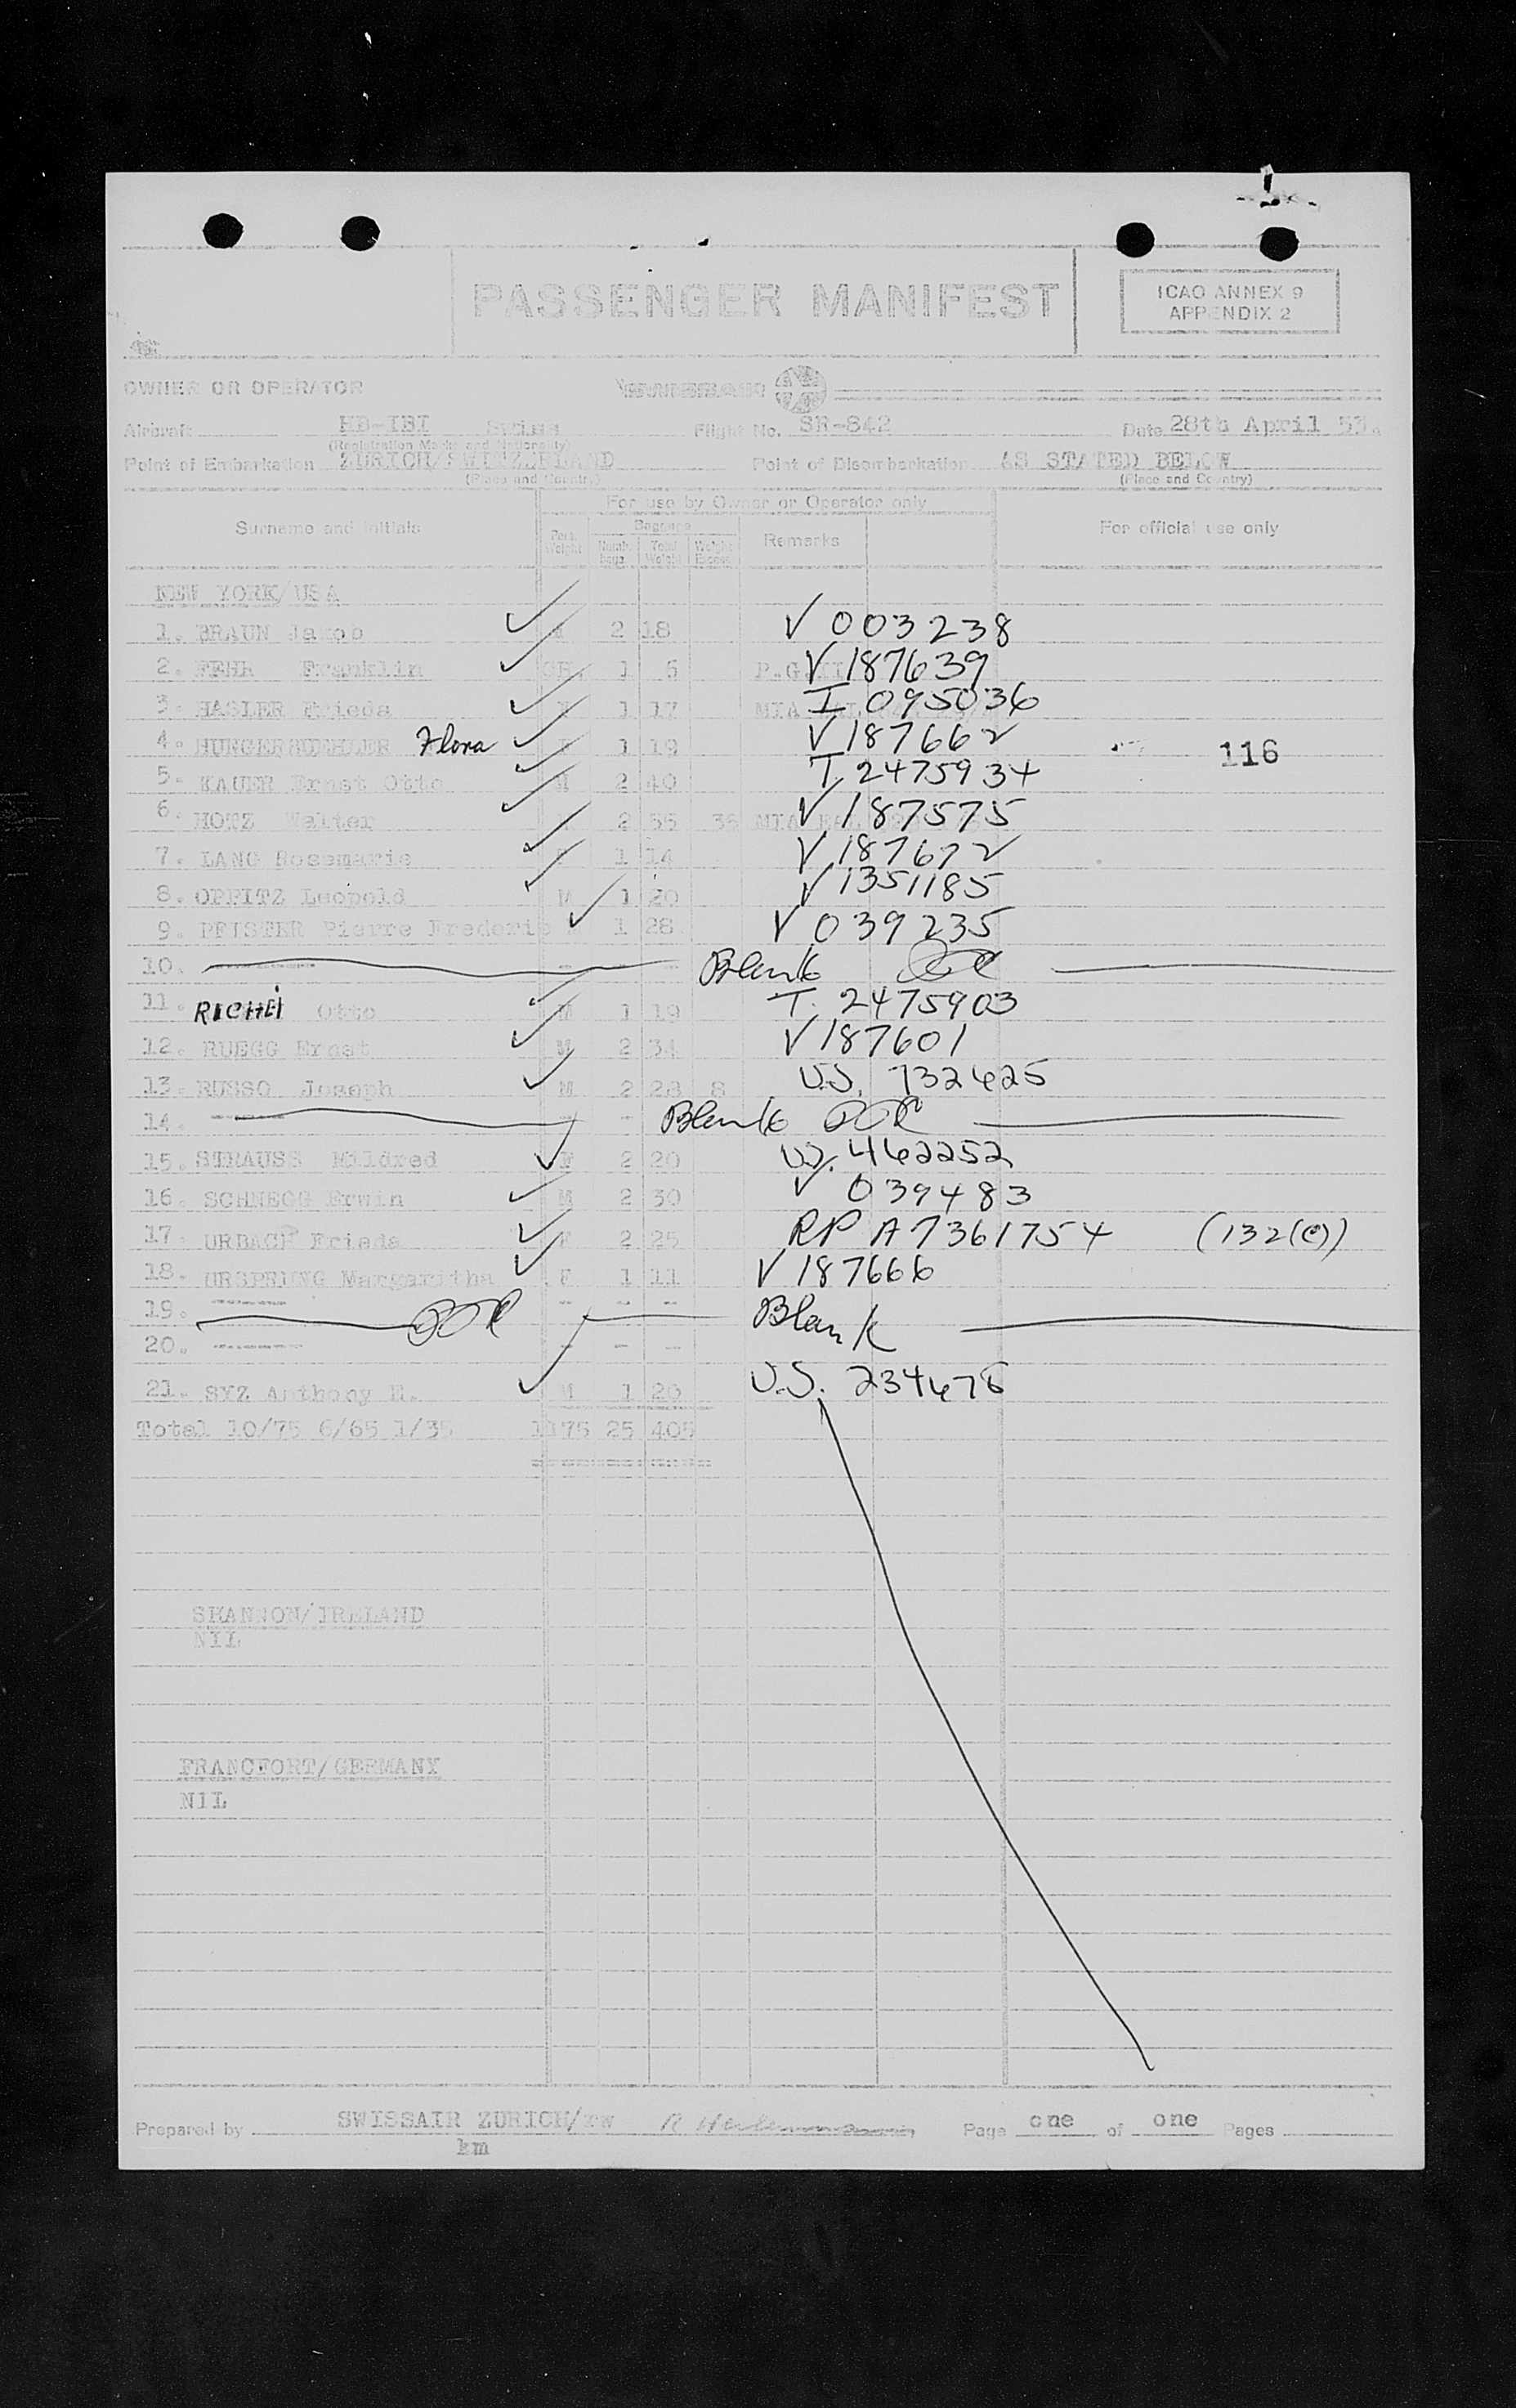 PASSENGER MANIFEST
ICAO ANNEX 9
APPENDIX 2
OWNER OR OPERATOR
Aircraft HB-IBI Swiss Flight No. SR-842 Date 28th April 53.
(Registration Marks and Nationality)
Point of Embarkation ZURICH/SWITZERLAND Point of Disembarkation AS STATED BELOW
(Place and Country) (Place and Country)
For use by Owner or Operator only
Surname and Initials Baggage Remarks For official use only
Weight Total Weight Weight Excess
NEW YORK/USA
1. BRAUN Jakob M 2 18 V 003238
2. FEHR Franklin CH. 1 5 V 187639
3. HASLER Frieda F 1 17 MIA I 095036
4. Flora F 1 19 V 187662 116
5. KAUER Ernst Otto M 2 40 T 2475934
6. HOTZ Walter M 2 55 35 MIA V 187575
7. LANG Rosemarie F 1 14 V 187672
8. OPFITZ Leopold M 1 20 V 1351185
9. PFISTER Pierre Frederic 1 28 V 039235
10. ----- - - - Blank
11. Otto M 1 19 T. 2475903
12. RUEGG Ernst M 2 34 V 187601
13. RUSSO Joseph M 2 28 8 U.S. 732625
14. ----- - - Blank
15. STRAUSS Mildred F 2 20 U.S. 462252
16. SCHNEGG Erwin M 2 30 V 039483
17. Frieda F 2 25 RP A7361754 (132(c))
18. URSPRUNG Margaritha F 1 11 V 187666
19. ----- - - - Blank
20. ----- - - -
21. SYZ Anthony H. M 1 20 U.S. 234676
Total 10/75 6/65 1/35 1175 25 405
SHANNON/IRELAND
NIL
FRANCFORT/GERMANY
NIL
Prepared by SWISSAIR ZURICH/rw Page one of one Pages
km